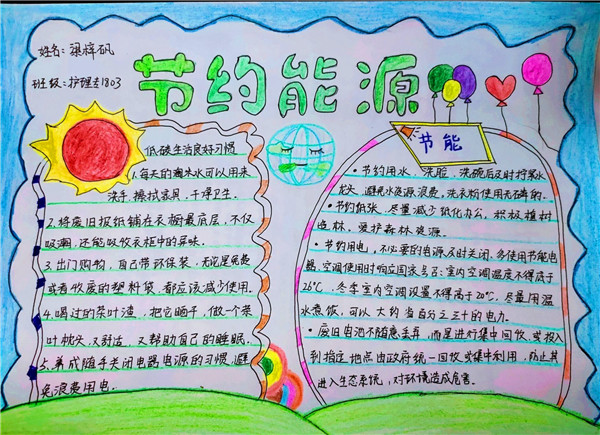 姓名:梁梓矾
班级:护理五1803
节约能源
低碳生活良好习惯
1.每天的淘米水可以用来
洗手,擦拭家具,干净卫生.
2.将废旧报纸铺在衣橱最底层,不仅
吸潮,还能吸收衣柜中的异味.
3.出门购物,自己带环保袋,无论是免费
或者收废的塑料袋,都应该减少使用.
4.喝过的茶叶渣,把它晒干,做一个茶
叶枕头,又舒适,又帮助自己的睡眠.
5.养成随手关闭电器电源的习惯,避
免浪费用电.
节能
• 节约用水、洗脸、洗碗后及时拧紧水
龙头,避免水资源浪费。洗衣粉使用无磷的.
• 节约纸张、尽量减少纸化办公,积极植树
造林,爱护森林资源.
• 节约用电,不必要的电源及时关闭,多使用节能电
器.空调使用时响应国家号召:室内空调温度不得低于
26℃,冬季室内空调设置不得高于20℃,尽量用温
水煮饭,可以大约省百分之三十的电力.
• 废旧电池不随意丢弃,而是进行集中回收,或投入
到指定地点由政府统一回收或集中利用,防止其
进入生态系统,对环境造成危害.